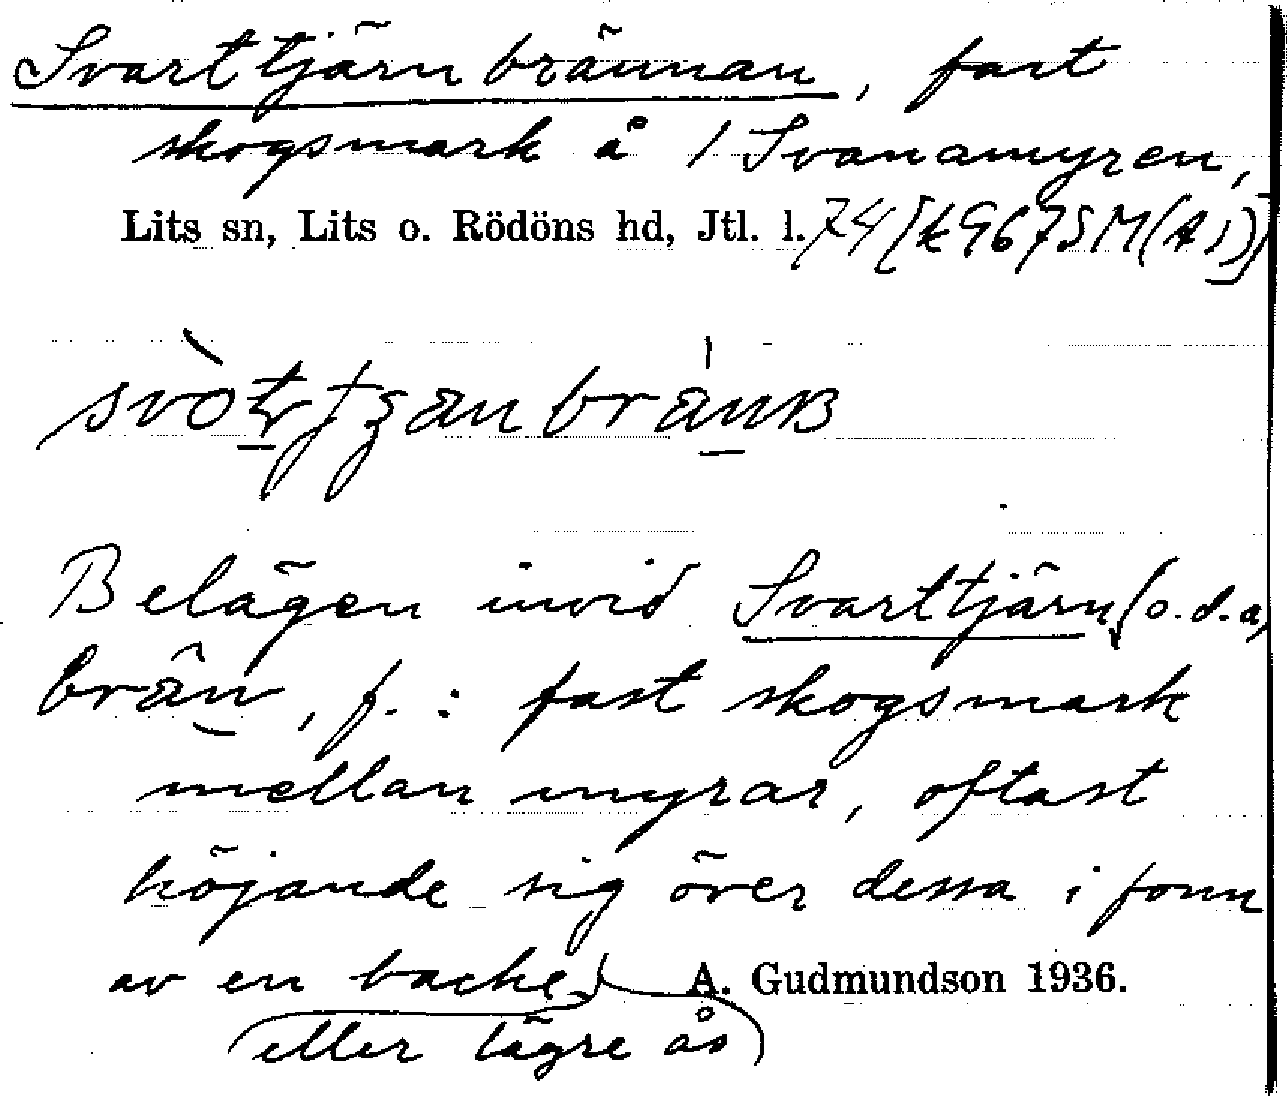 Svarttjärnbrännan, fast
skogsmark å /Svanamyren,
Lits sn, Lits o. Rödöns hd, Jtl. l. 74
Belägen invid Svarttjärn (o.d.a)
brän, f. : fast skogsmark
mellan myrar, oftast
höjande sig över dessa i form
av en backe A. Gudmundson 1936.
eller lägre ås